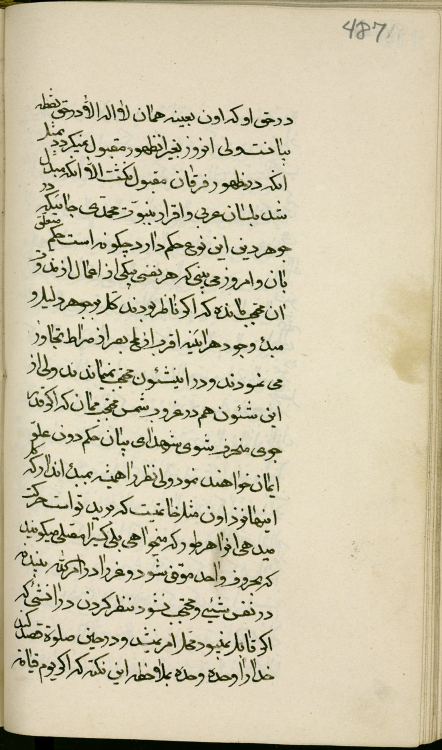 487
در حق او که اون بعینه همان لا اله الا در حق نقطه
بیان است ولی امروز بغیر از ظهور مقبول نمیگردد مثل
انکه در ظهور فرقان مقبول نگشت الا انکه مبدل
شد بلسان عربی و اقرار بنبوت محمدی جائیکه در
جوهر دین این نوع حکم دارد چگونه است حکم متعلق
بان و امروز می بینی که هر نفسی بیکی از اعمال از
ان محتجب مانده که اگر ناظر بودند کل بجوهر دلیل و
مبدء وجود هر اینه اقرب از لمح بصر از صراط تجاوز
می نمودند و در این شئون محتجب نمیماندند ولی از
این شئون هم در غروب شمس محتجب ممان که اگر قدر
جوی منحرف شوی شهدای بیان حکم دون علو
ایمان خواهند نمود ولی نظر را همیشه بمبدء انداز که کل
اینها نزد اون مثل خاتمیست که برید تو است حرکت
میدهی انرا هر طور که میخواهی بلی کبیرا مقبلی میگوئید
که بحروف واحد موقن شود و غروب در امر الله ننیده
در نفس شیئی و محتجب نشود بنظر کردن در انشیء که
اگر قابل نمیبود محل امر نمیشد و در حین صلوة قصد کن
خدا را وحده وحده بملاحظه این نکته که اگر یوم قیامة